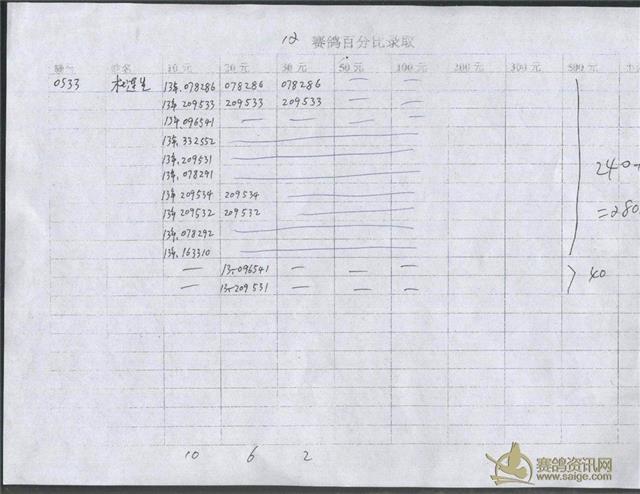 12 赛鸽百分比录取
棚号 姓名 10元 20元 30元 50元 100元 200元 300元 500元
0533 13年.078286 078286 078286 — —
13年.209533 209533 209533 — —
13年.096541 — — — —
13年.332552
13年.209531
13年.078291
13年.209534 209534
13年.209532 209532
13年.078292
13年.163310
240
=280
— 13年096541 — — —
— 13年209531 — — —
40
10 6 2
赛鸽资讯网
www.saige.com